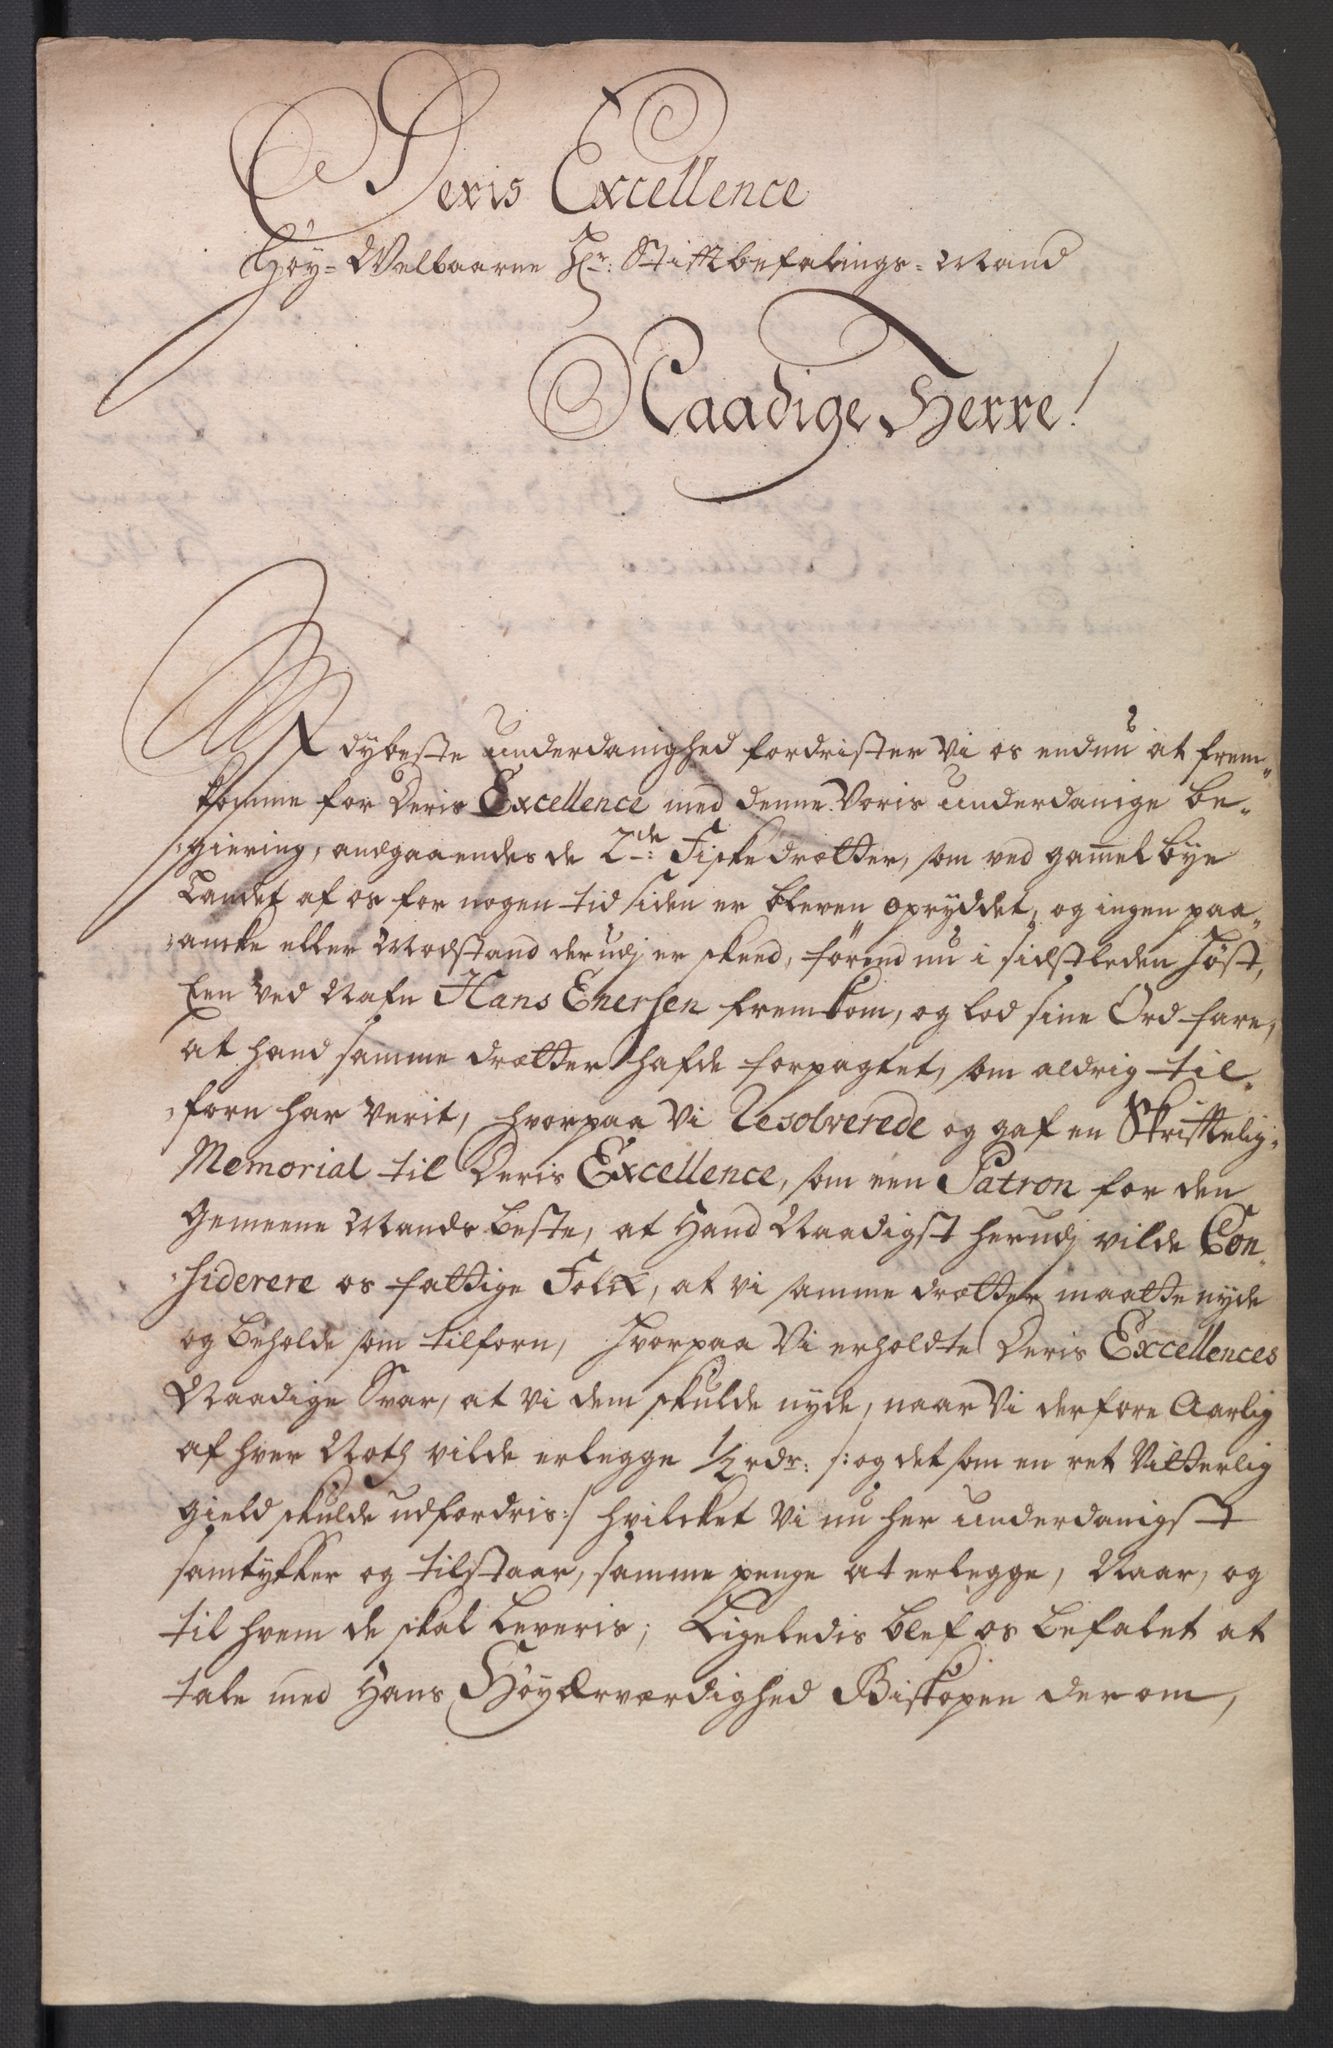 Deris Excellence
Höy=Welbaarne Hr: Stiftbefalings=Mand
Naadige Herre!
Af dybeste underdanighed fordrister Vi os endnu at frem-
komme for Deris Excellence med denne Voris underdanige be-
giering, andgaaendes de 2de: Fiskedrætter, som ved gammelbye
Landet af os for nogen tid siden er bleven opryddet, og ingen paa-
ancke eller Modstand derudj er skeed, förend nu i sidstleden Höst,
Een ved Nafn Hans Enersen fremkom, og lod sine Ord fare,
at hand samme drætter hafde forpagtet, som aldrig til-
forn har verit, hvorpaa Vi Resolverede og gaf en Skriftelig
Memorial til Deris Excellence, som een Patron for den
Gemeene Mands beste, at Hand Naadigst herudj vilde Con-
siderere os fattige Folck, at vi samme drætter maatte nyde
og beholde som tilforn, Hvorpaa Vi erholdte Deris Excellences
Naadige Svar, at vi dem skulde nyde, naar Vi derfore Aarlig
af hver Noth vilde erlegge 1/2 rdr: /: og det som en ret Vitterlig
gield skulde udfordris :/ hvilcket Vi nu her underdanigst
samtykker og tilstaar, samme penge at erlegge, Naar, og
til hvem de skal leveris; Ligeledis blef os befalet at
tale med Hans HöyÆrværdighed Biskopen derom,